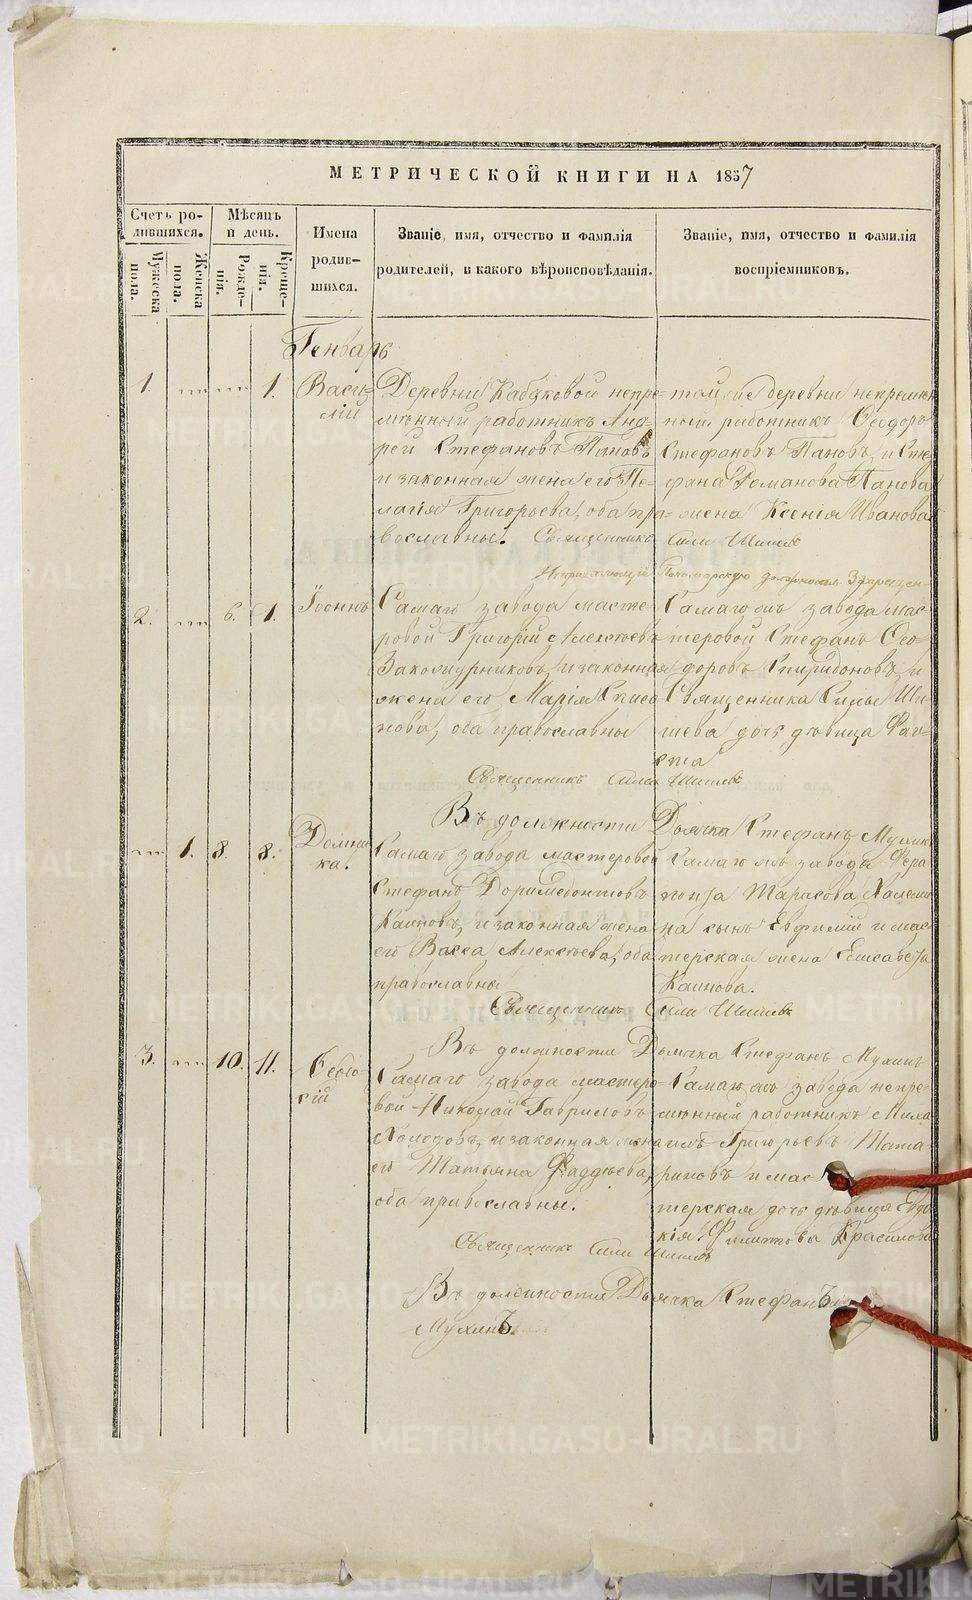 МЕТРИЧЕСКОЙ КНИГИ НА 1857
Счетъ ро-
дившихся.
Мужеска
пола.
Женска
пола.
Мѣсяцъ
и день.
Рожде-
нія.
Креще-
нія.
Имена
родив-
шихся.
Званіе, имя, отчество и фамилія
родителей, и какого вѣроисповѣданія.
Званіе, имя, отчество и фамилія
воспріемниковъ.
Генварь
1. 1. Васи-
лій
Деревни Кабаковой непре-
мѣнный работникъ Анд-
рей Стефановъ Пановъ
и законная жена его Пе-
лагія Григорьева, оба пра-
вославны.
той же деревни непремѣн
ной работникъ Ѳеодоръ
Стефановъ Пановъ, и Сте
фана Романова Панова
жена Ксенія Иванова
Священникъ Сила
должность
2. 6. 1. Іоаннъ
Самаго завода масте-
ровой Григорій Алексѣевъ
и законная
жена его Марія
оба православны
Самагожъ завода мас-
теровой Стефанъ Ѳео
доровъ Спиридоновъ, и
Священника Силы Ши
шева дочь дѣвица Фав-
ста
Священникъ Сила Шишевъ
Въ должности Дьячка Стефанъ Мухинъ
1. 8. 8. Домни-
ка.
Самаго завода мастеровой
Стефанъ Доримедонтовъ
Каиновъ, и законная жена
его Васса Алексѣева, оба
православны
Самагожъ завода Фера
понта Тарасова
на сынъ Евфимій и мас-
терская жена Елисавета
Каинова.
Священникъ Сила Шишевъ
Въ должности Дьячка Стефанъ Мухинъ
3. 10. 11. Евво-
гій
Самаго завода мастеро-
вой Николай Гавриловъ
Холодовъ, и законная жена
его Татьяна Фаддѣева,
оба православны.
Самагожъ завода непре-
мѣнный работникъ Миха
илъ Григорьевъ Тата-
риновъ и мас
терская дочь дѣвица Евдо
кія Филиппова Красилова
Священникъ Сила Шишевъ
Въ должности Дьячка Стефанъ
Мухинъ.
METRIKI.GASO-URAL.RU